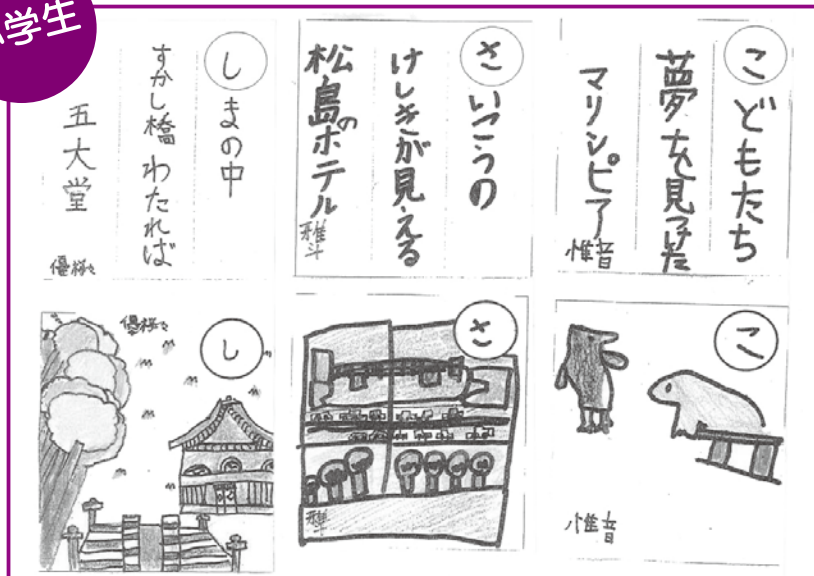 小学生
こどもたち
夢を見つけた
マリンピア
惟音
さいこうの
けしきが見える
松島のホテル
雅斗
しまの中
すかし橋 わたれば
五大堂
優桜々
こ
惟音
さ
し
優桜々